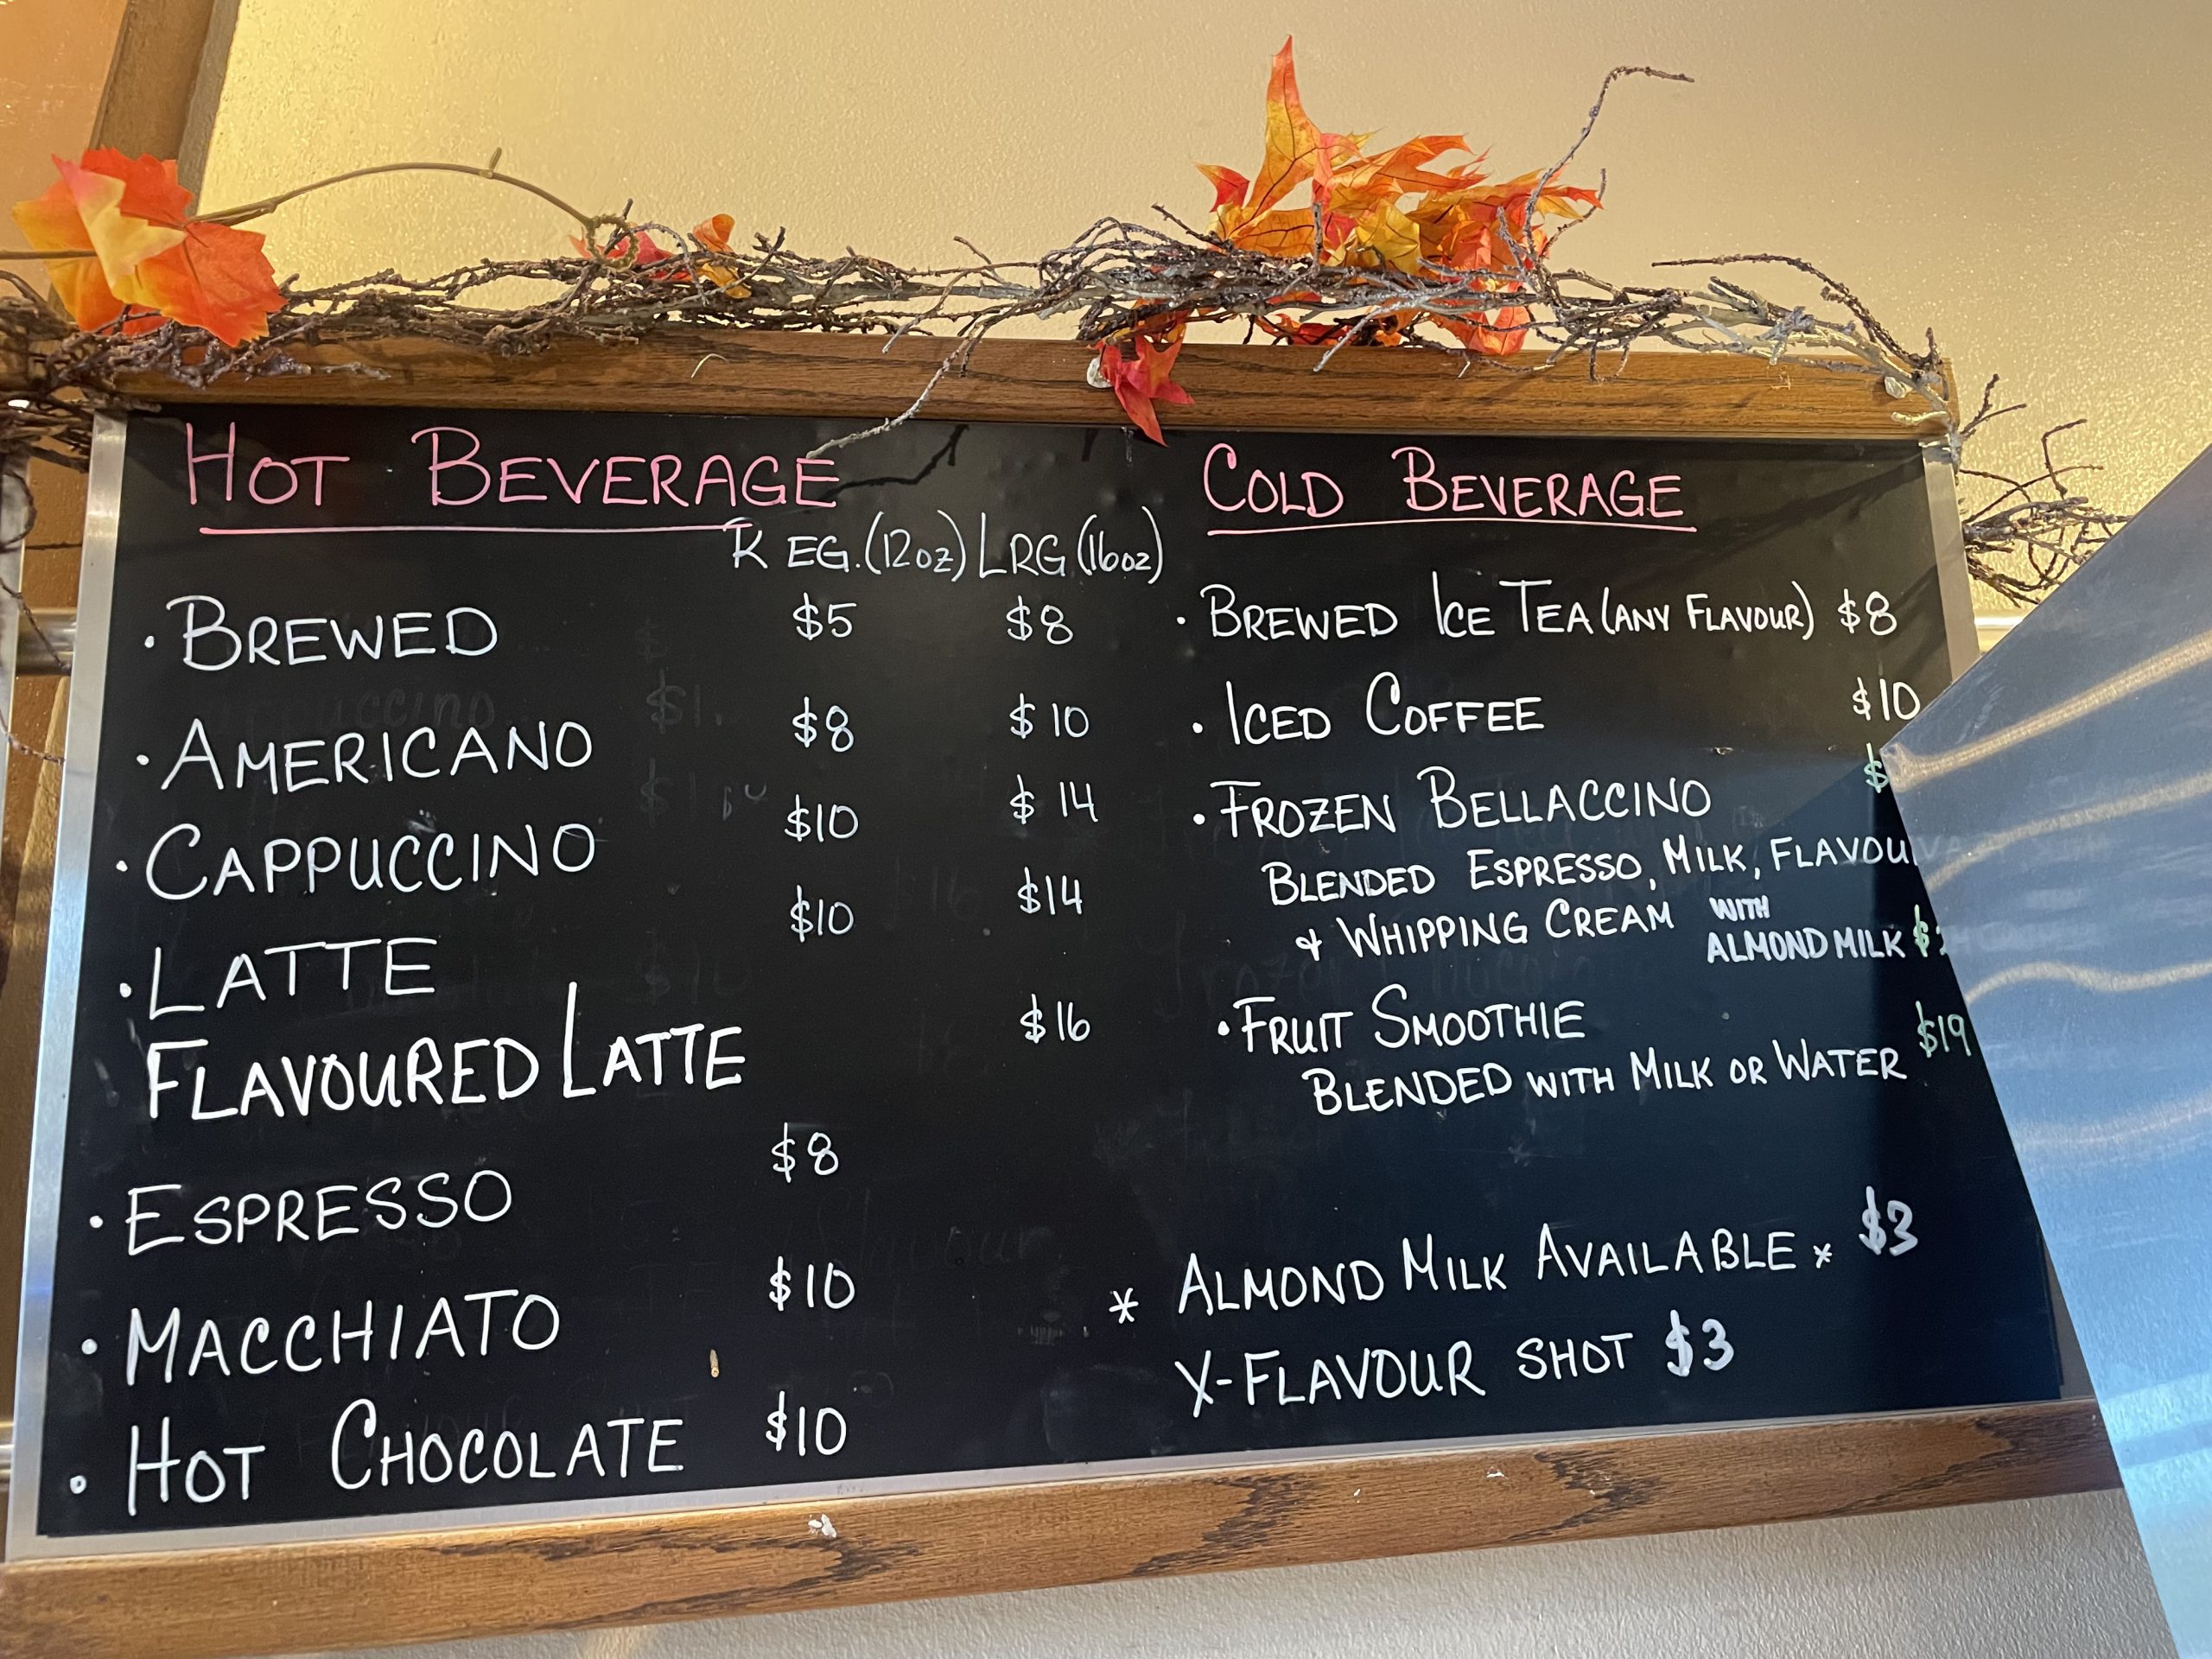 HOT BEVERAGE
REG. (12oz) LRG (16oz)
• BREWED $5 $8
• AMERICANO $8 $10
• CAPPUCCINO $10 $14
• LATTE $10 $14
FLAVOURED LATTE $16
• ESPRESSO $8
• MACCHIATO $10
• HOT CHOCOLATE $10
COLD BEVERAGE
• BREWED ICE TEA (ANY FLAVOUR) $8
• ICED COFFEE $10
• FROZEN BELLACCINO $
BLENDED ESPRESSO, MILK,
& WHIPPING CREAM WITH
ALMOND MILK $
• FRUIT SMOOTHIE $19
BLENDED WITH MILK OR WATER
* ALMOND MILK AVAILABLE * $3
X-FLAVOUR SHOT $3